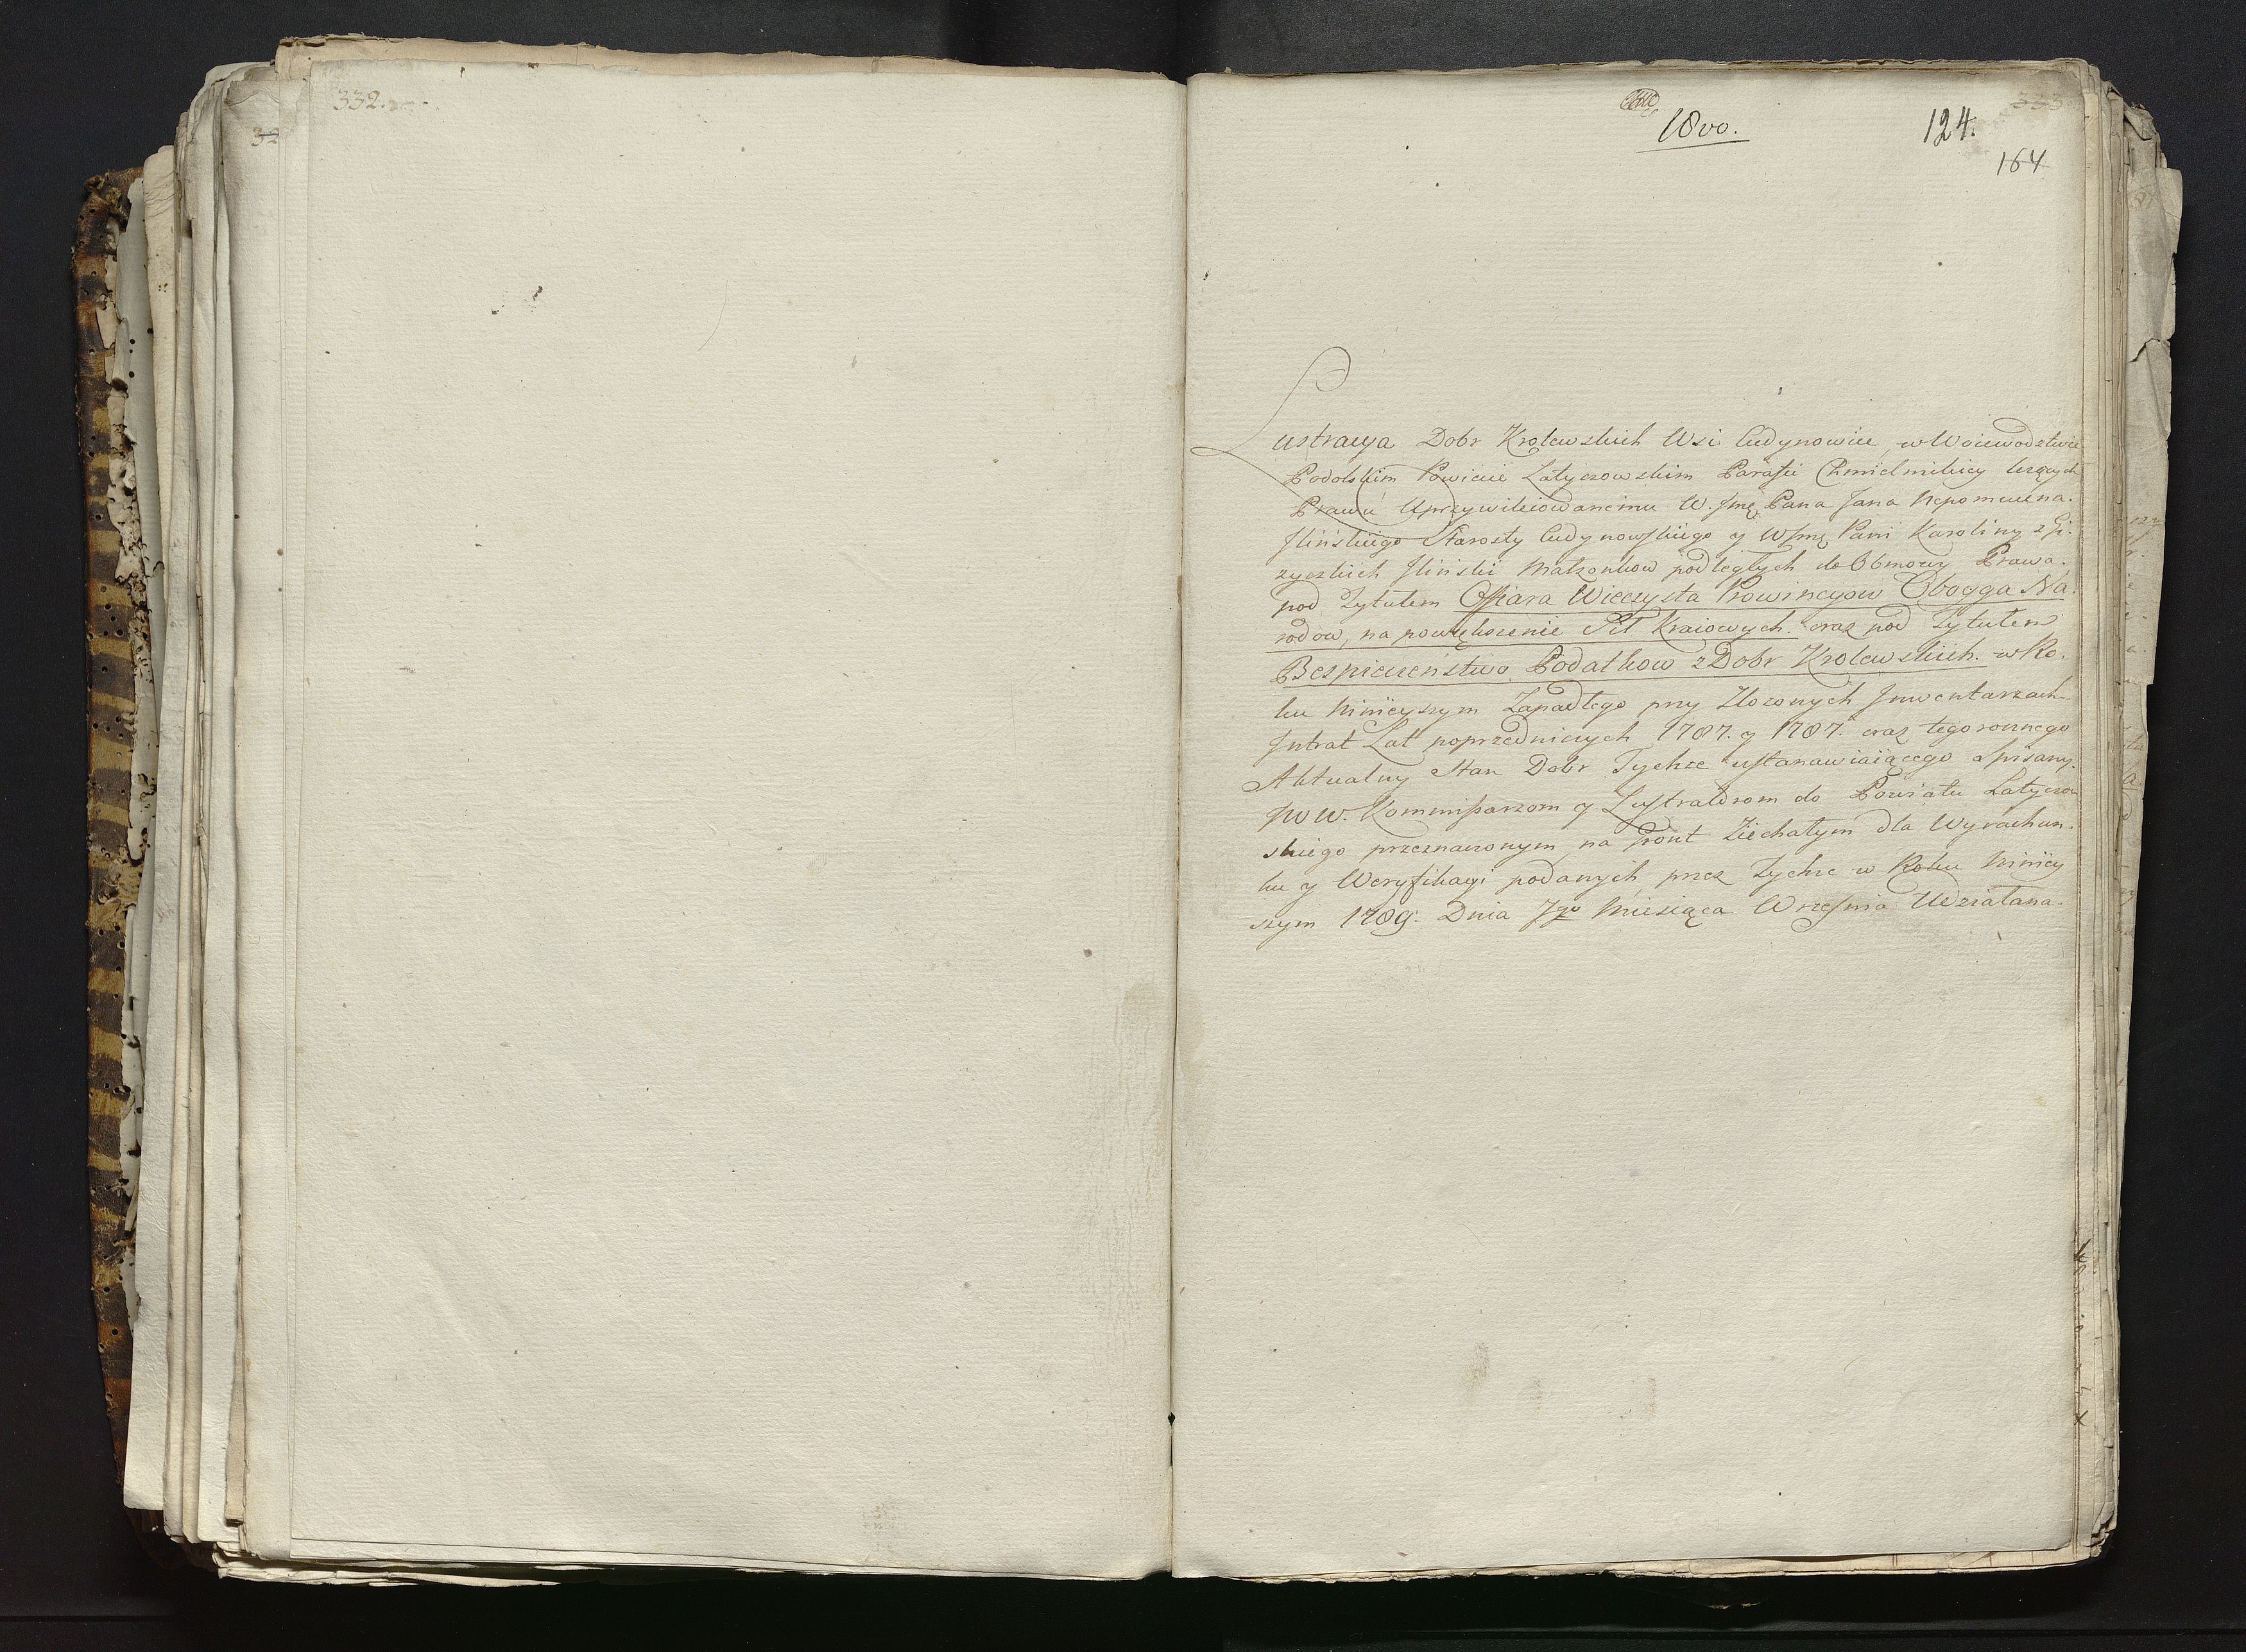 332.
32
18vo.
124.
333
164
Lustracya Dobr Krolewskich Wsi Cudynowiec, w Woiewodztwie
Podolskim Powiecie Latyczowskim Parafii Chmielnickiey lezących
Prawu Uprzywileiowanemu W. Jmę Pana Jana Nepomucena
Ilińskiego Starosty Cudynowskiego y WJmę Pani Karoliny z Gi-
zyckich Ilinskie Małzonkow podległych do Obmowy Prawa
pod Tytułem Offiara Wieczysta Prowincyow Oboyga Na-
rodow, na powiększenie Sił Kraiowych. oraz pod Tytułem
Bespieczeństwo Podatkow z Dobr Krolewskich. w Ro-
ku ninieyszym Zapadłego przy złozonych Jnwentarzach
Jntrat Lat poprzedniczych 1787. y 1787. oraz tegorocznego
Aktualny Stan Dobr Tychze ustanawiaiącego spisany
po W. Kommissarzom y Lustratorom do Powiatu Latyczo-
skiego przeznaczonym na Grunt Ziechałym dla Wyrachun-
ku y Weryfikacyi podanych przez Tychze w Roku niniey
szym 1789. Dnia 7go Miesiąca Wrzesnia Udziałana